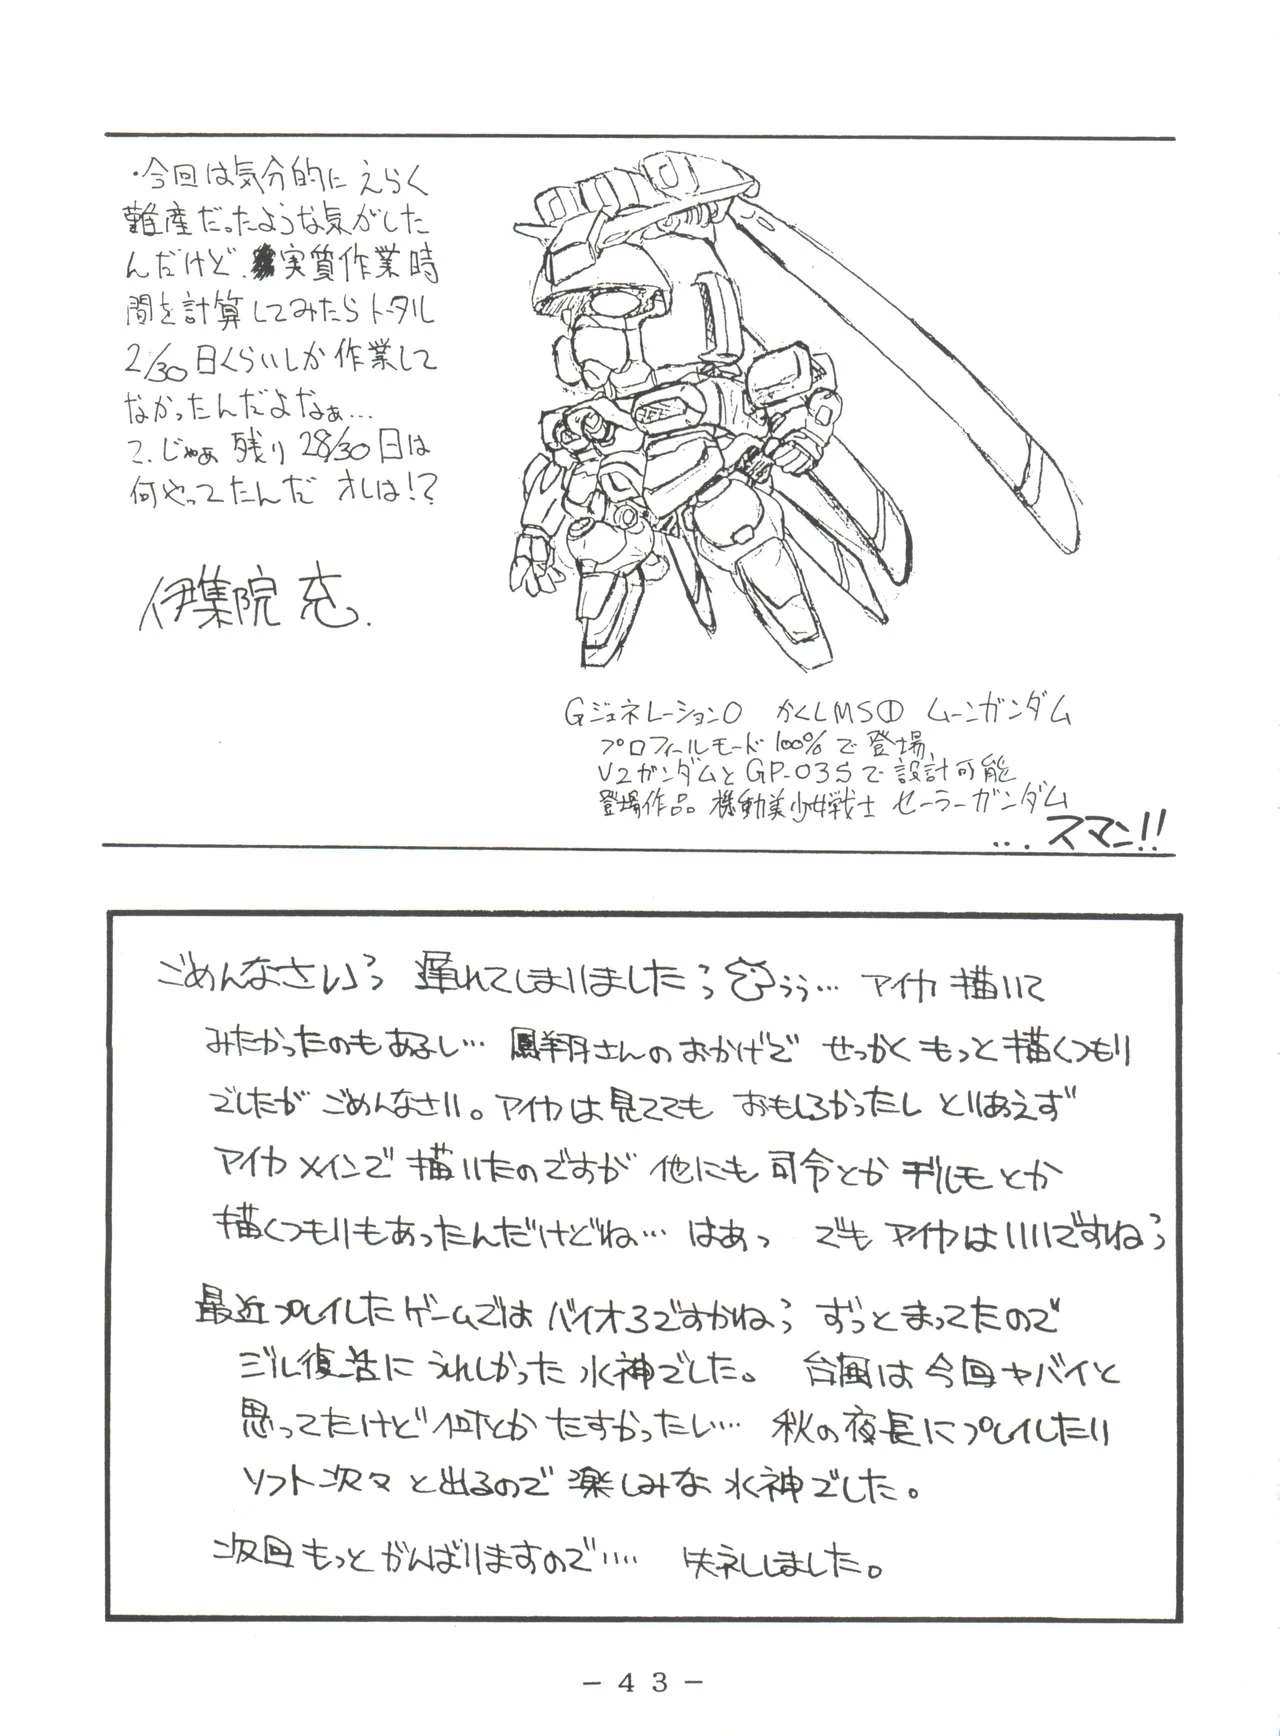 ・今回は気分的にえらく
難産だったような気がした
んだけど、実質作業時
間を計算してみたらトータル
2/30日くらいしか作業して
なかったんだよなぁ…
て、じゃぁ残り28/30日は
何やってたんだオレは!?
伊集院 充
Gジェネレーション0 かくしMS① ムーンガンダム
プロフィールモード100%で登場、
V2ガンダムとGP-03Sで設計可能
登場作品 機動美少女戦士 セーラーガンダム
...スマン!!
ごめんなさいっ 遅れてしまいましたっ うぅ… アイカ描いて
みたかったのもあるし… 鳳翔さんのおかげで せっかくもっと描くつもり
でしたが ごめんなさい。アイカは見てても おもしろかったし とりあえず
アイカメインで描いたのですが 他にも司令とかデルモとか
描くつもりもあったんだけどね… はあっ でもアイカはいいですねぅ
最近プレイしたゲームではバイオ3ですかねぅ ずっとまってたので
ジル復活に うれしかった 水神でした。 台風は今回ヤバイと
思ってたけど 何とか たすかったし… 秋の夜長にプレイしたり
ソフト次々と出るので 楽しみな水神でした。
次回もっとがんばりますので…… 失礼しました。
- 43 -